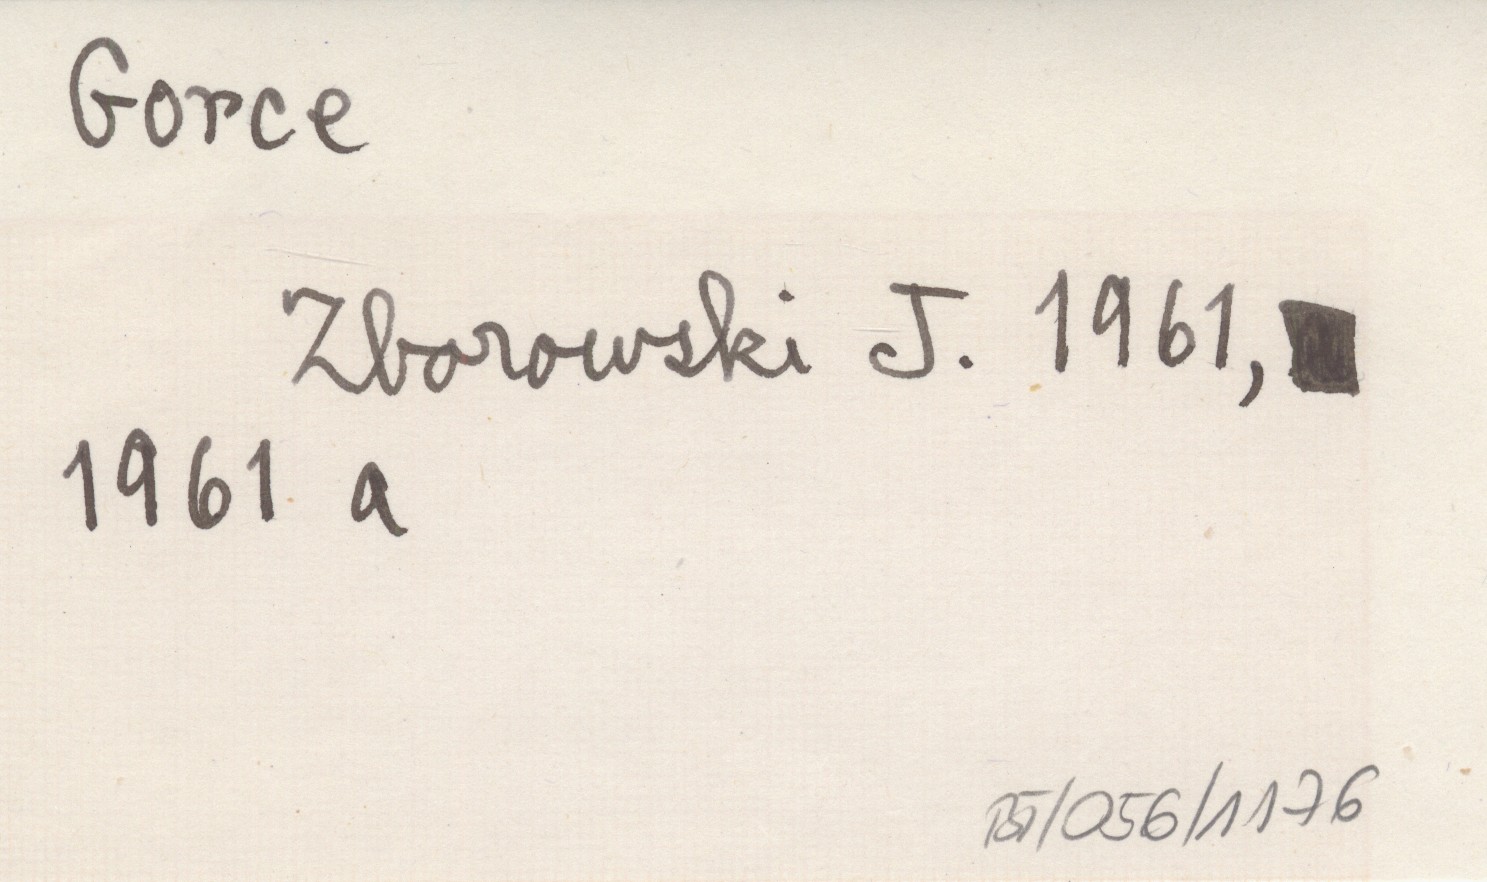 Gorce
Zborowski J. 1961,
1961 a
/056/1176